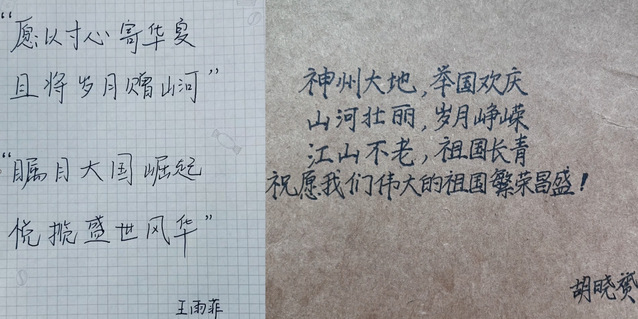 “愿以寸心寄华夏
且将岁月赠山河”
“瞩目大国崛起
悦揽盛世风华”
王雨菲
神州大地，举国欢庆
山河壮丽，岁月峥嵘
江山不老，祖国长青
祝愿我们伟大的祖国繁荣昌盛！
胡晓赟